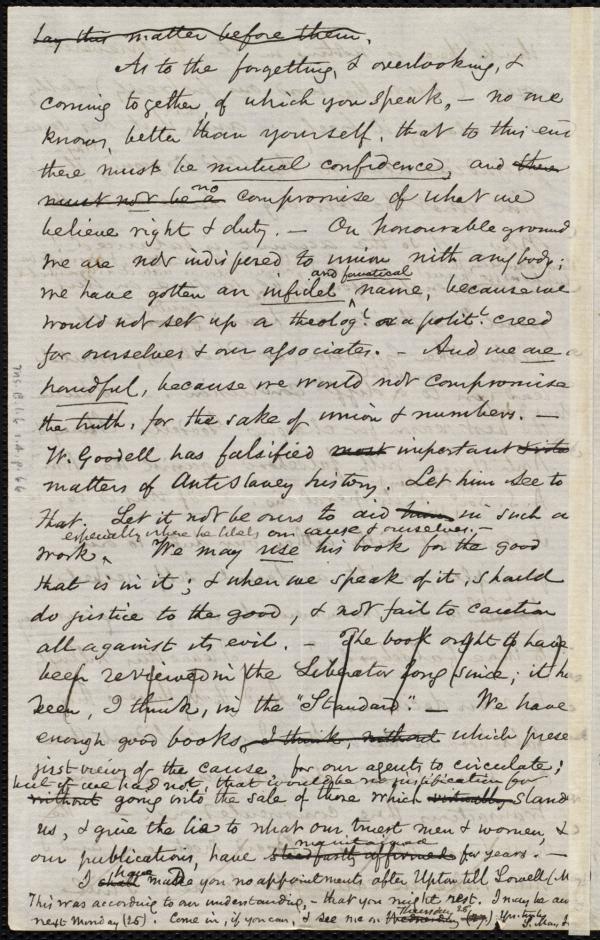 lay this matter before them.
As to the forgetting, & overlooking, &
coming together, of which you speak, – no one
knows, better than yourself, that to this end
there must be mutual confidence, and there
must not be a no compromise of what we
believe right & duty. – On honourable ground
we are not indisposed to union with anybody;
and fanatical
we have gotten an infidel name, because we
would not set up a theolog.l or a polit.l creed
for ourselves & our associates. – And we are a
handful, because we would not compromise
the truth, for the sake of union & numbers. –
W. Goodell has falsified most important
matters of AntiSlavery history. Let him see to
that. Let it not be ours to aid him in such a
especially where he libels our cause & ourselves. –
work. We may use his book for the good
that is in it; & when we speak of it, should
do justice to the good, & not fail to caution
all against its evil. – The book ought to have
been reviewed in the Liberator long since; it ha
been, I think, in the "Standard". – We have
enough good books, I think, without which prese
just views of the cause for our agents to circulate;
but if we had not, that would be no justification for
without going into the sale of those which virtually sland
us, & give the lie to what our truest men & women, &
maintained
our publications, have steadfastly affirmed for years. –
have
I shall made you no appointments after Upton till Lowell (M
This was according to our understanding, – that you might rest. I may be aw
Thursday 28
next Monday (25). Come in, if you can, & see me on Wednesday (27). Yrs. truly
S. May Jr